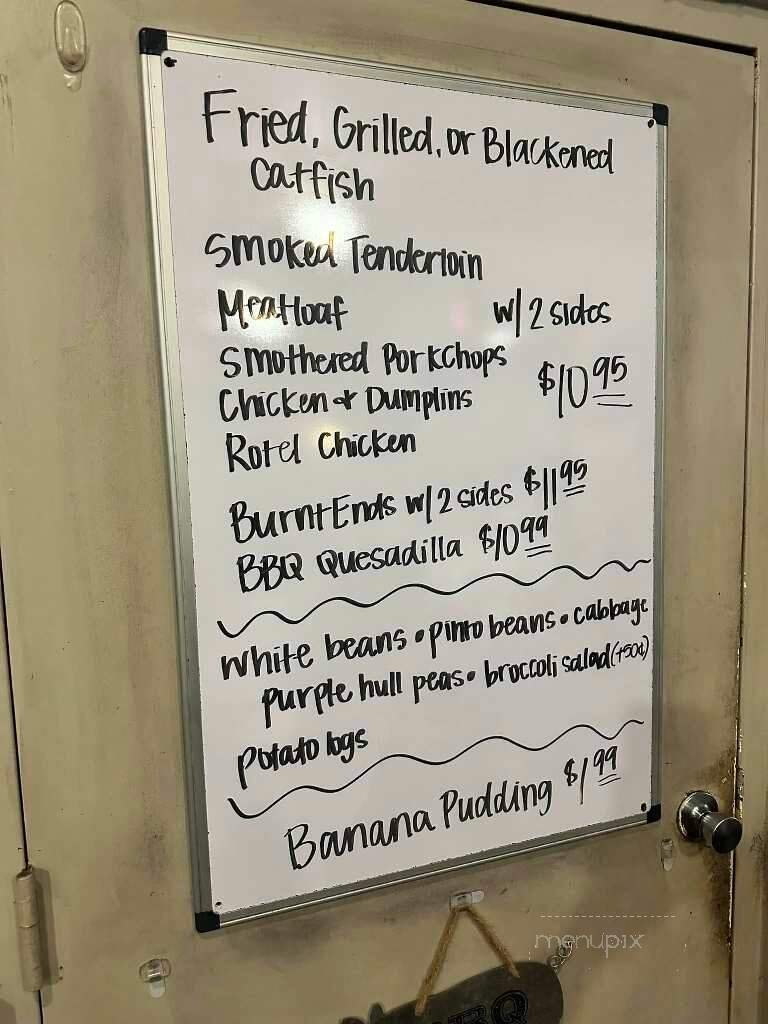 Fried, Grilled, or Blackened
Catfish
Smoked Tenderloin
Meatloaf w/ 2 sides
Smothered Porkchops
$10.95
Chicken & Dumplins
Rotel Chicken
Burnt Ends w/ 2 sides $11.95
BBQ Quesadilla $10.99
white beans • pinto beans • cabbage
purple hull peas • broccoli salad (+50¢)
potato logs
Banana Pudding $1.99
menupix
BBQ